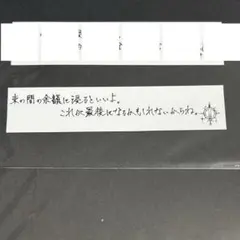 束の間の余韻に浸るといいよ。
これが最後になるかもしれないからね。